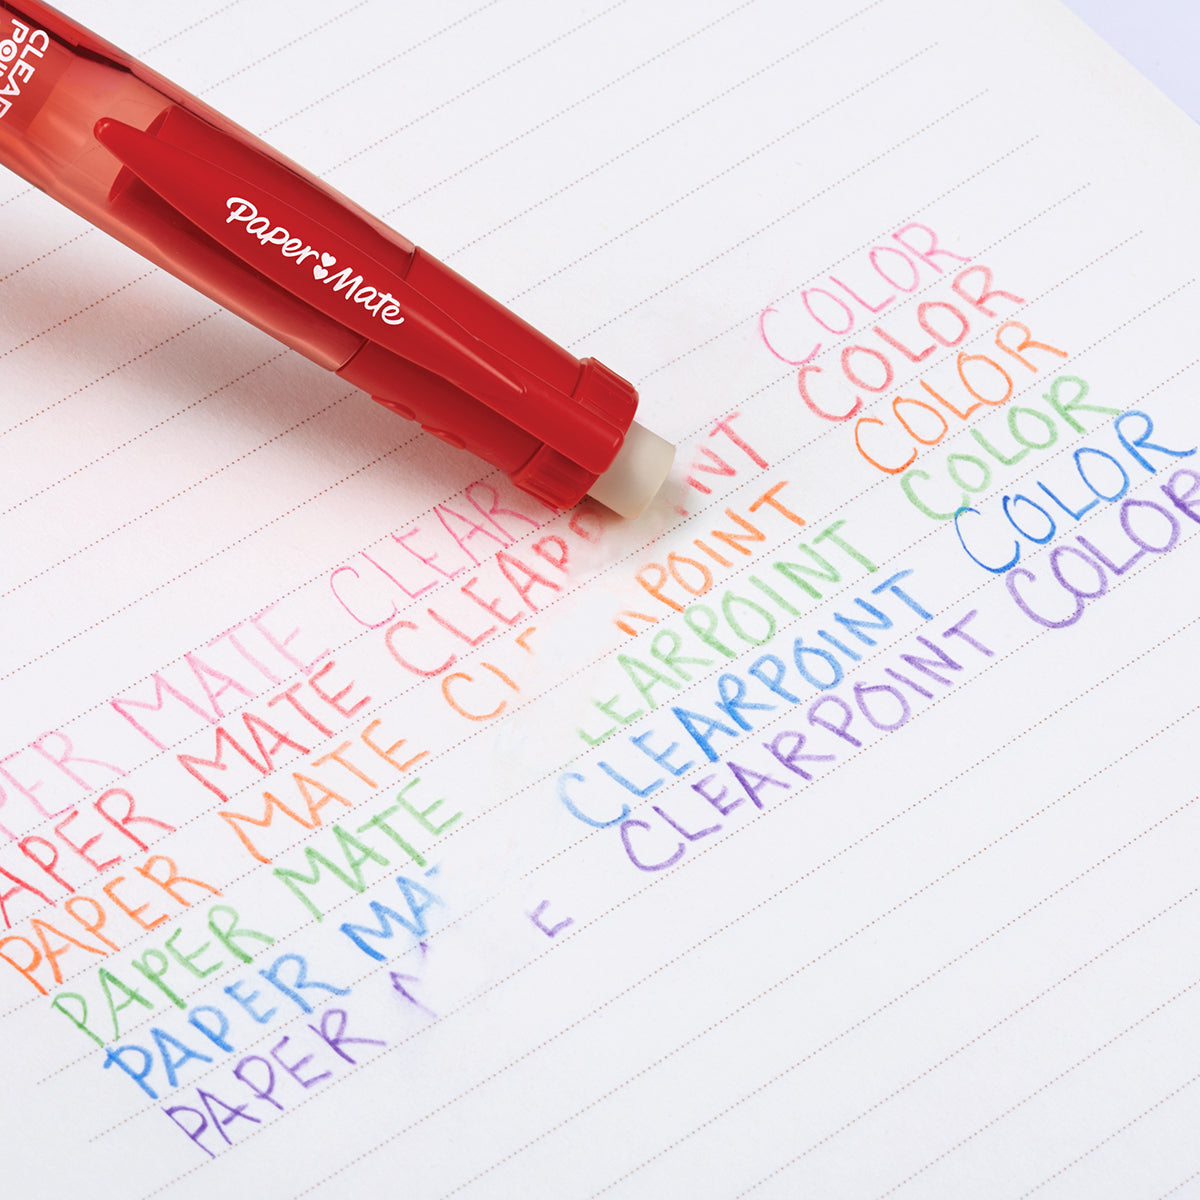 CLEAR
POINT
Paper Mate
PER MATE CLEAR COLOR
APER MATE CLEARP NT COLOR
PAPER MATE CL POINT COLOR
PAPER MATE LEARPOINT COLOR
PAPER MA CLEARPOINT COLOR
PAPER E CLEARPOINT COLOR